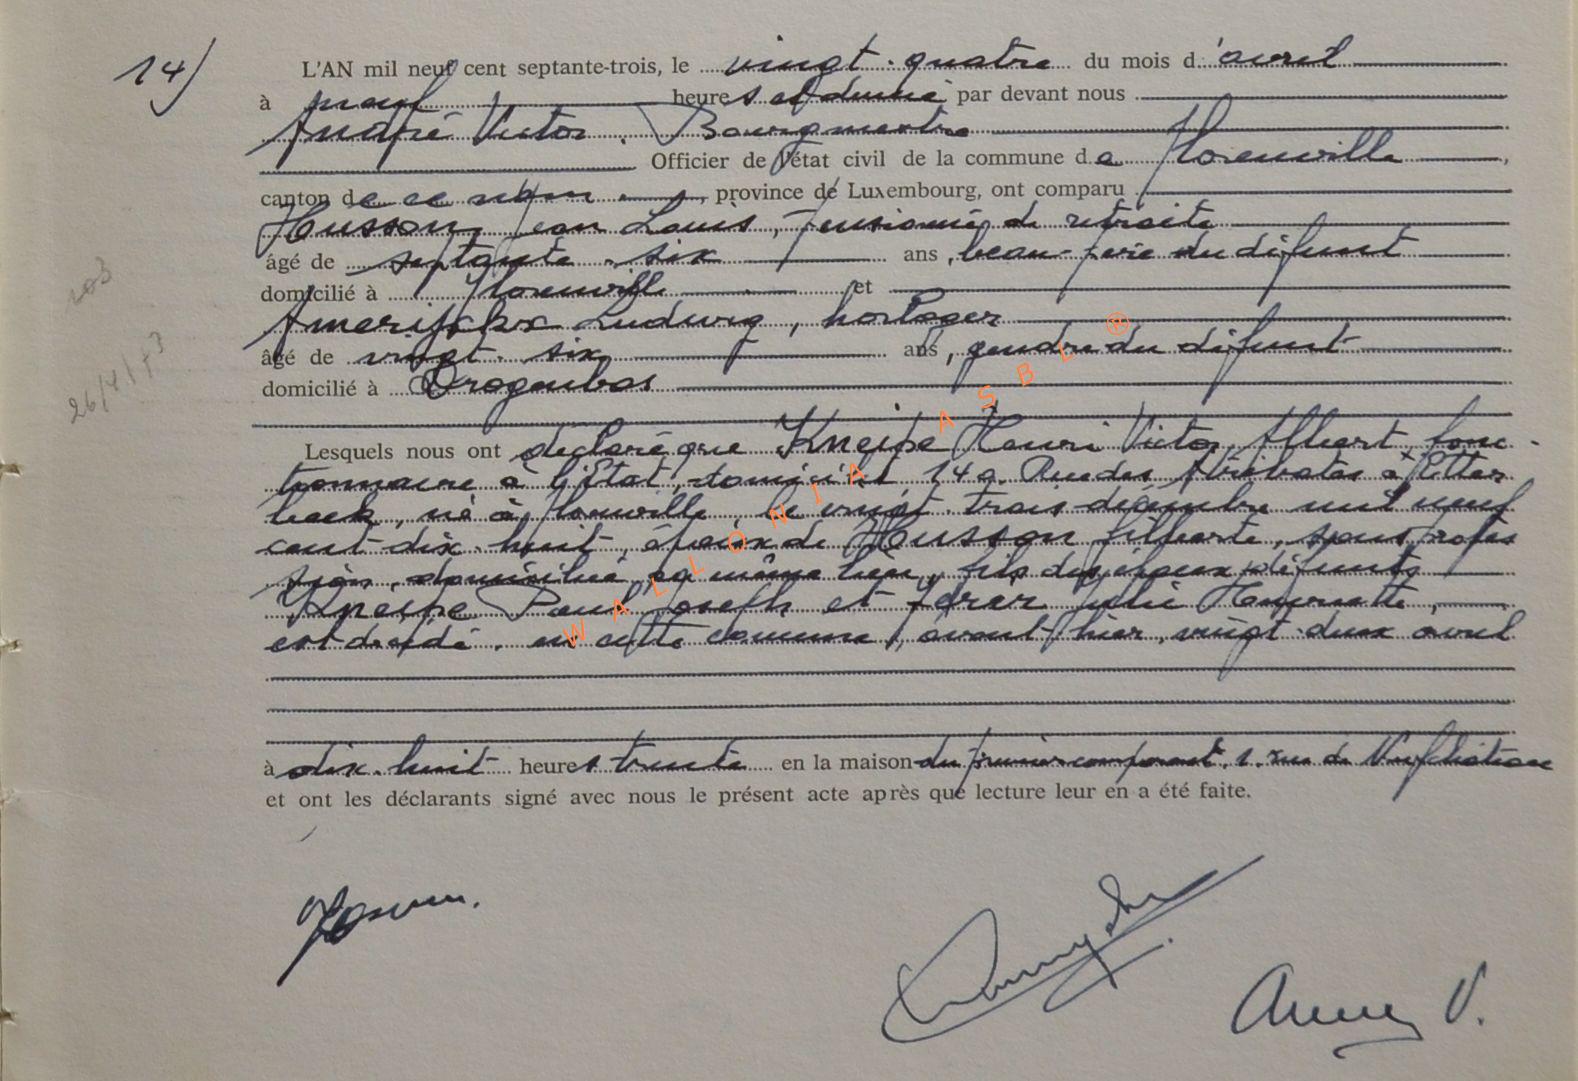 14)
L'AN mil neuf cent septante-trois, le vingt-quatre du mois d'avril
à neuf heures et demie par devant nous
André Victor, Bourgmestre
Officier de l'état civil de la commune de Florenville,
canton de ce nom, province de Luxembourg, ont comparu
Husson, Jean Louis, pensionné de retraite
âgé de septante-six ans, beau-père du défunt
domicilié à Florenville et
Amerijckx Ludwig, horloger
âgé de vingt-six ans, gendre du défunt
domicilié à Drogenbos
Lesquels nous ont déclaré que Kneipe Henri Victor Albert fonc-
tionnaire à l'Etat, domicilié, 149. Rue des Atrébates à Etter
beek, né à Florenville, le vingt-trois décembre mil neuf
cent-dix-huit, époux de Husson Gilberte, sans profes
sion, domiciliée au même lieu, fils des époux défunts
Kneipe Paul Joseph et Julie Henriette,
est décédé, en cette commune, avant-hier, vingt-deux avril
à dix-huit heures trente en la maison du premier comparant, 1. rue de Neufchâteau
et ont les déclarants signé avec nous le présent acte après que lecture leur en a été faite.
203
26/4/73
WALLONIA ASBL ®